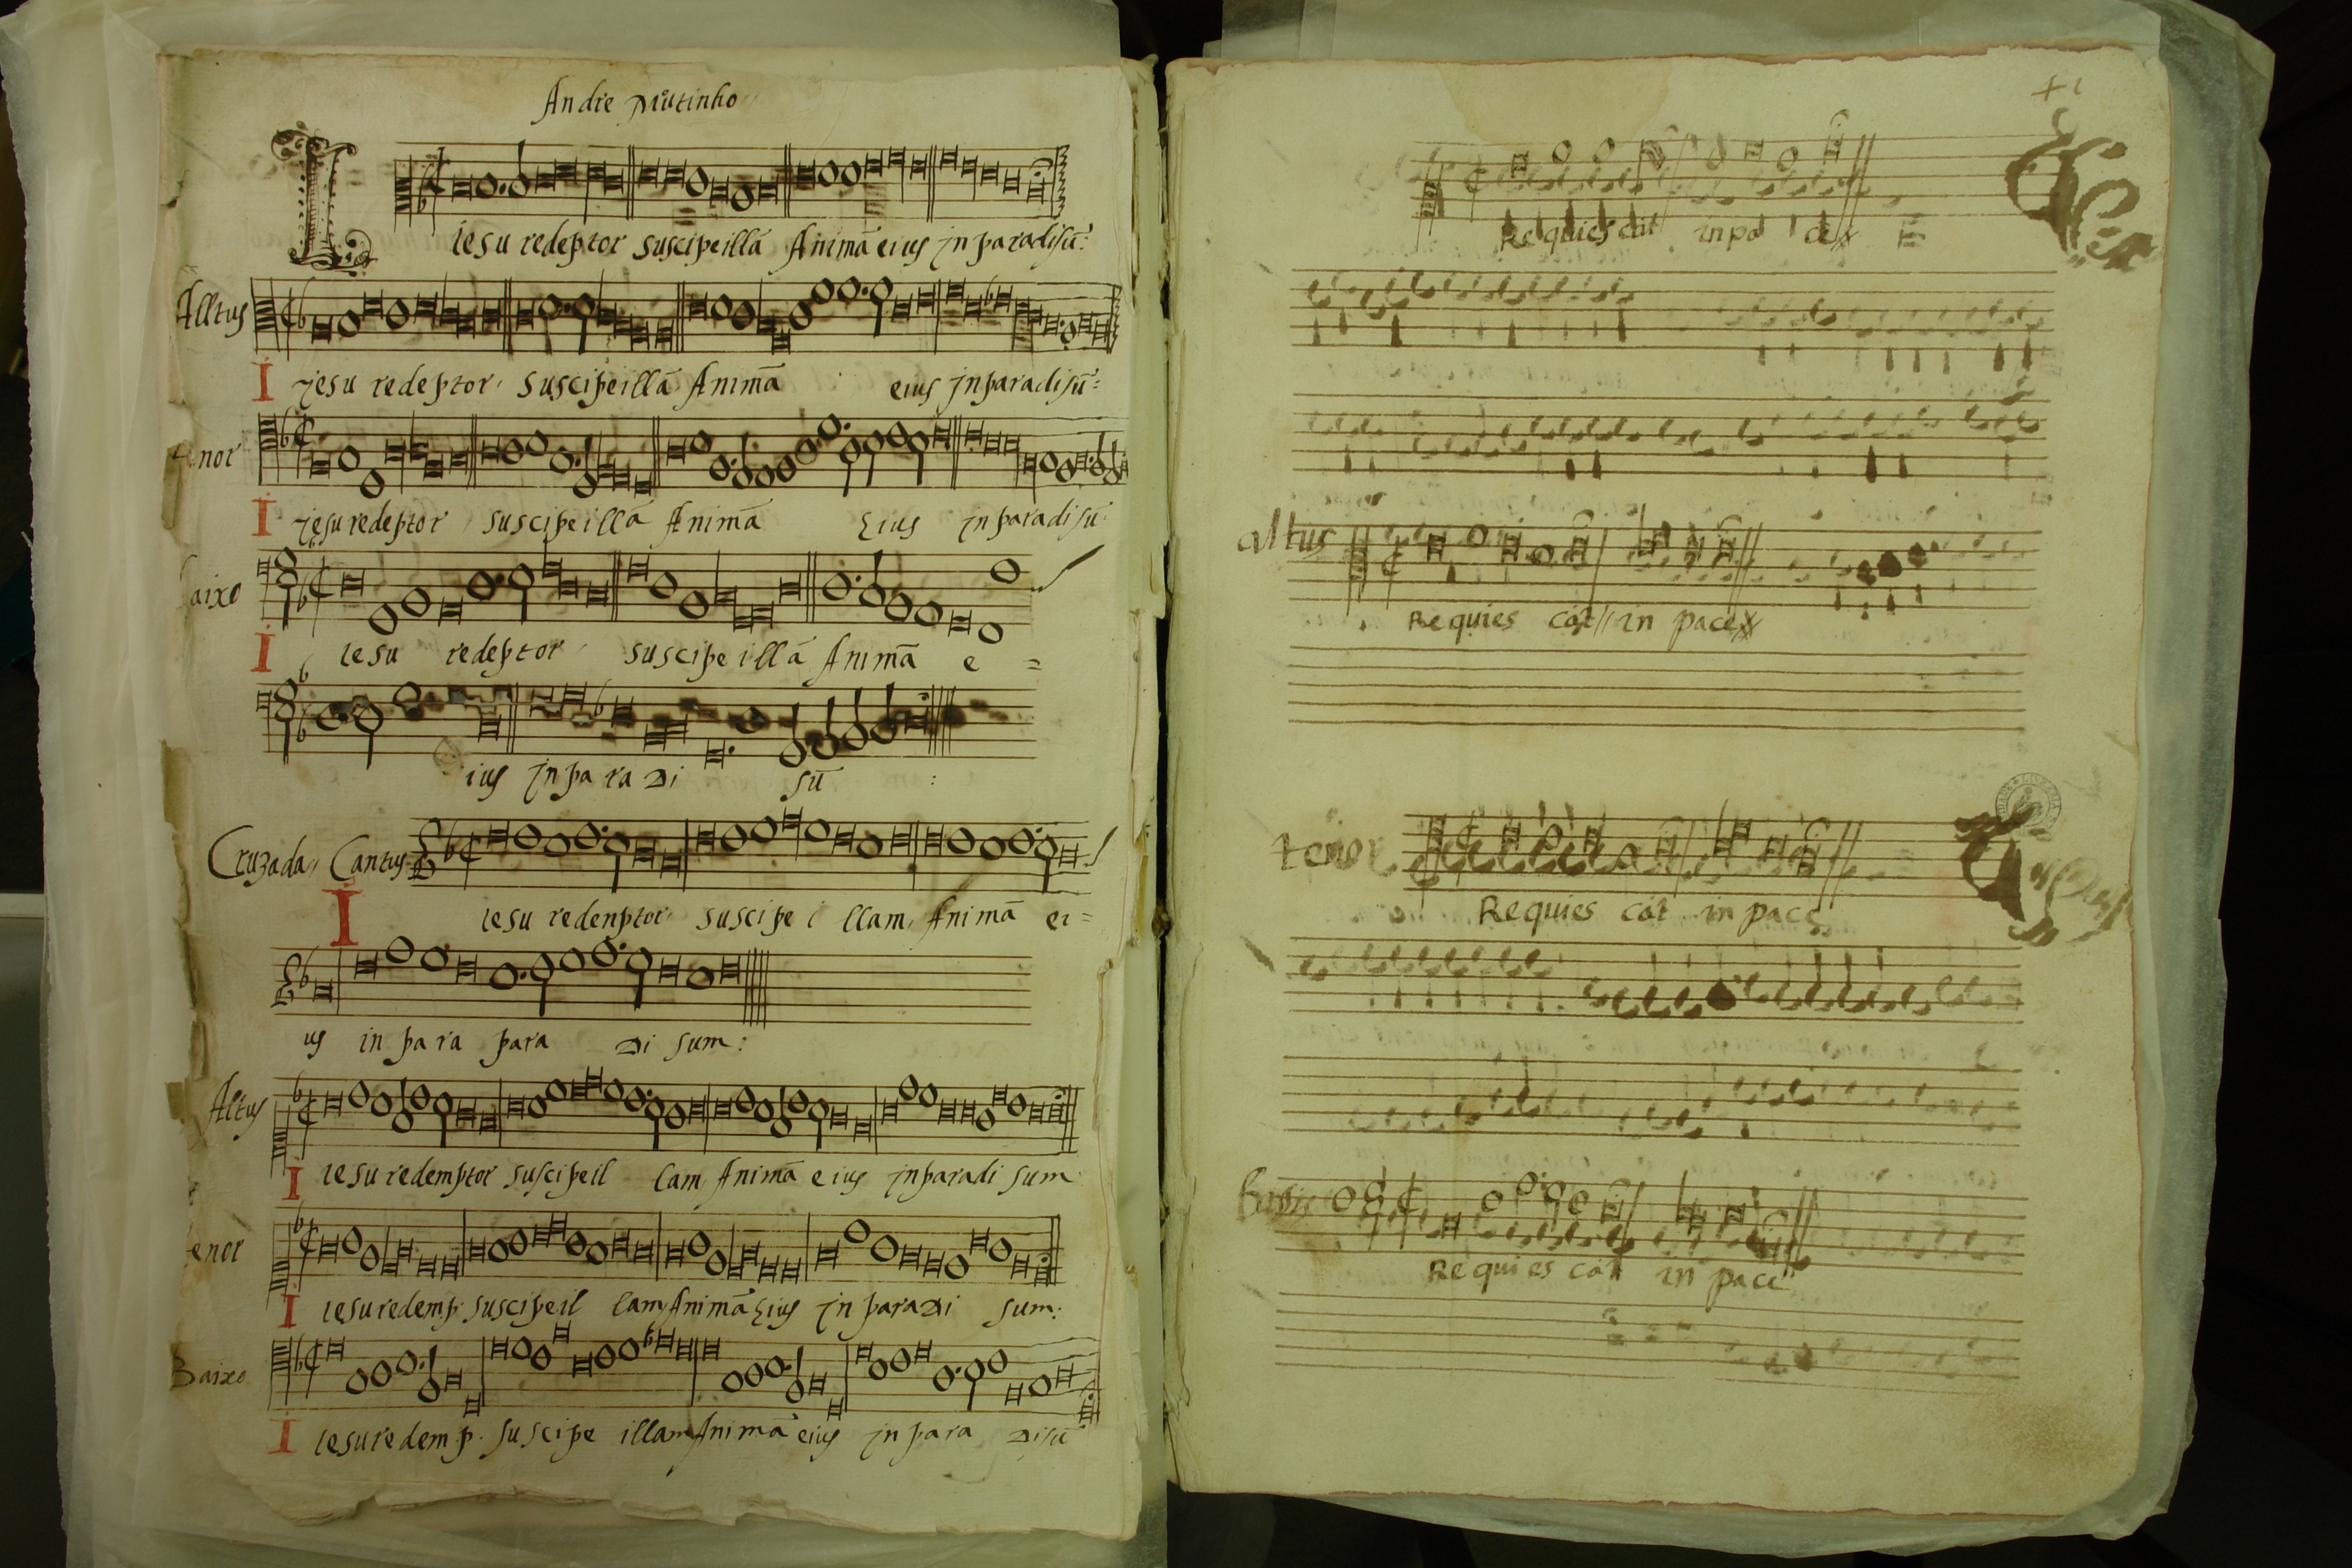 Andre Mutinho
I
iesu redeptor suscipe illā Animā eius in paradisū:
Alltus
I iesu redeptor suscipe illā Animā eius in paradisū:
enor
I iesu redeptor suscipe illā Animā eius in paradisū
aixo
I iesu redeptor suscipe illā Animā e =
ius in para di sū :
Cruzada, Cantus
I iesu redenptor suscipe i llam, Animā ei=
us in para para di sum:
Altus
I iesu redemptor suscipe il lam Animā eius in paradi sum
enor
I iesu redemp. suscipe il lam Animā eius in paradi sum:
Baixo
I iesu redemp. suscipe illam Animā eius in para disū
Requies cāt in pa ce
altus
Requies cāt in pace
tenor
Requies cāt in pace
Requies cāt in pace